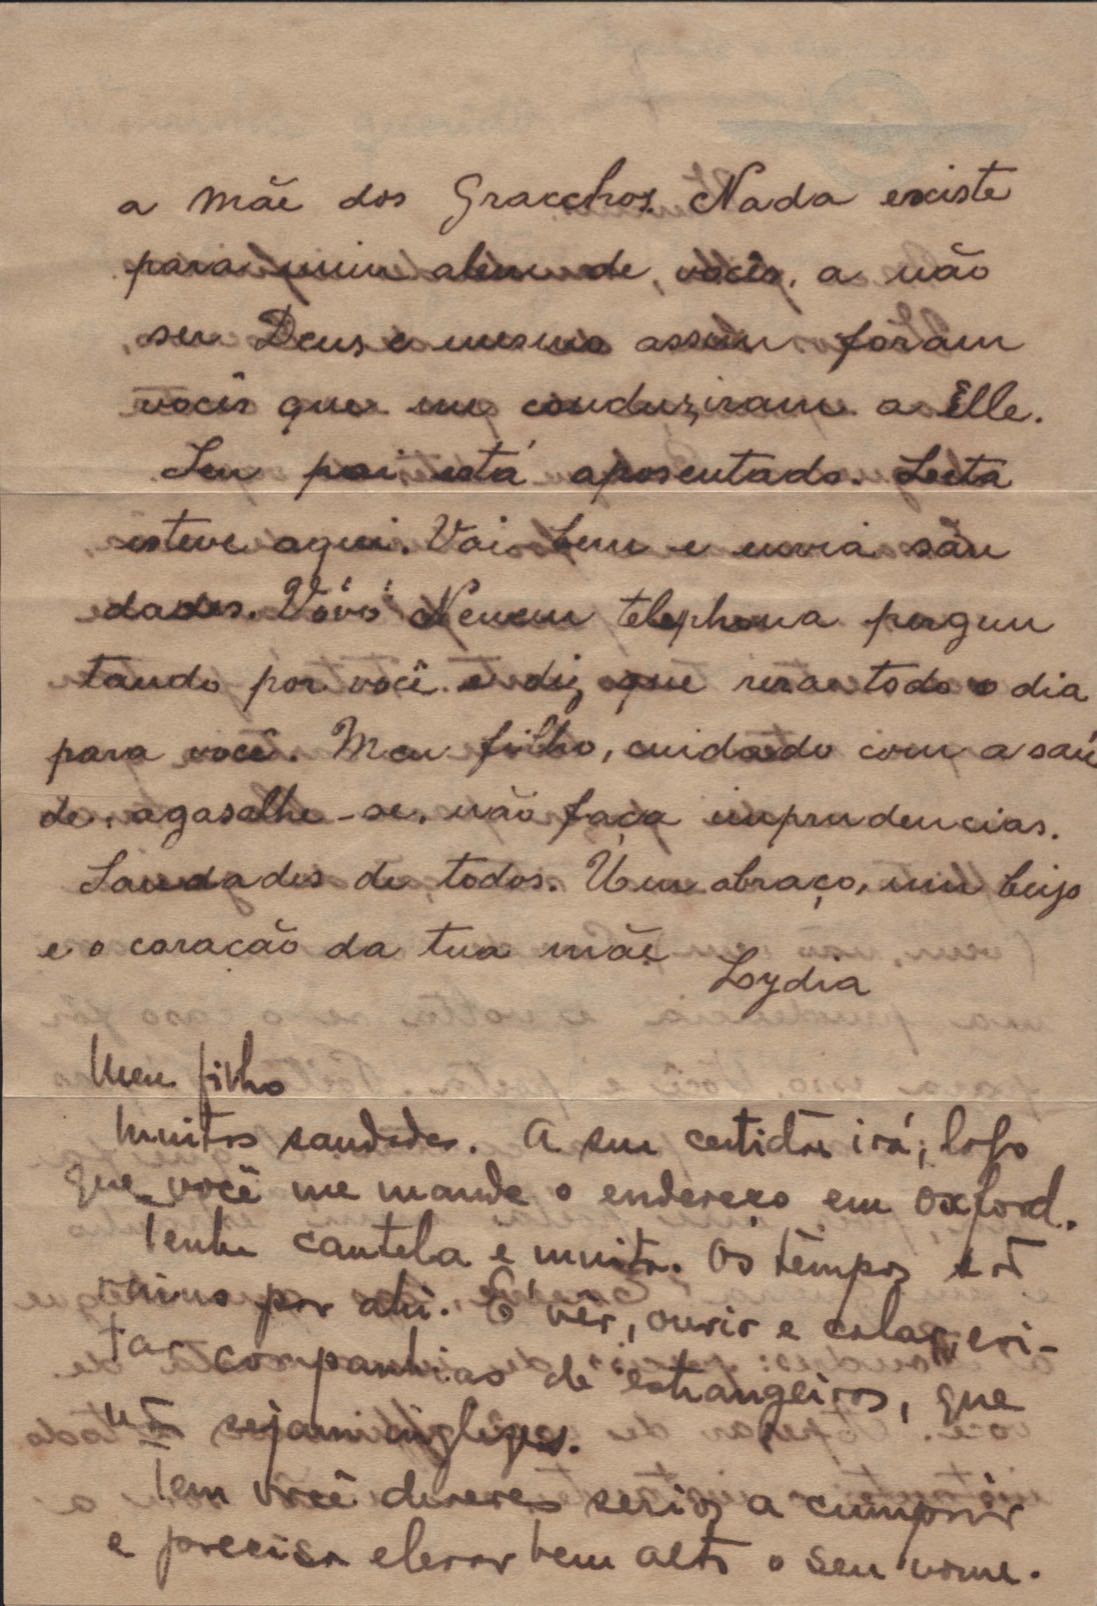 a mãe dos Gracchos. Nada existe
para mim alem de vocês, a não
ser Deus e mesmo assim foram
vocês que me conduziram a Elle.
Seu pai está aposentado. Leeta
esteve aqui. Vai bem e envia sau
dades. Vóvó Nenem telephona pergun
tando por você e diz que resa todo o dia
para você. Meu filho, cuidado com a saú
de, agasalhe-se, não faça imprudencias.
Saudades de todos. Um abraço, um beijo
e o coração da tua mãe
Lydia
Meu filho
Muitas saudades. A sua certidão irá, logo
que você me mande o endereço em Oxford.
Tenha cautela e muita. Os tempos estão
ruins por ahi. É vêr, ouvir e calar, evi-
tar companhias de estrangeiros, que
não sejam inglêses.
Tem você deveres serios a cumprir
e precisa elevar bem alto o seu nome.